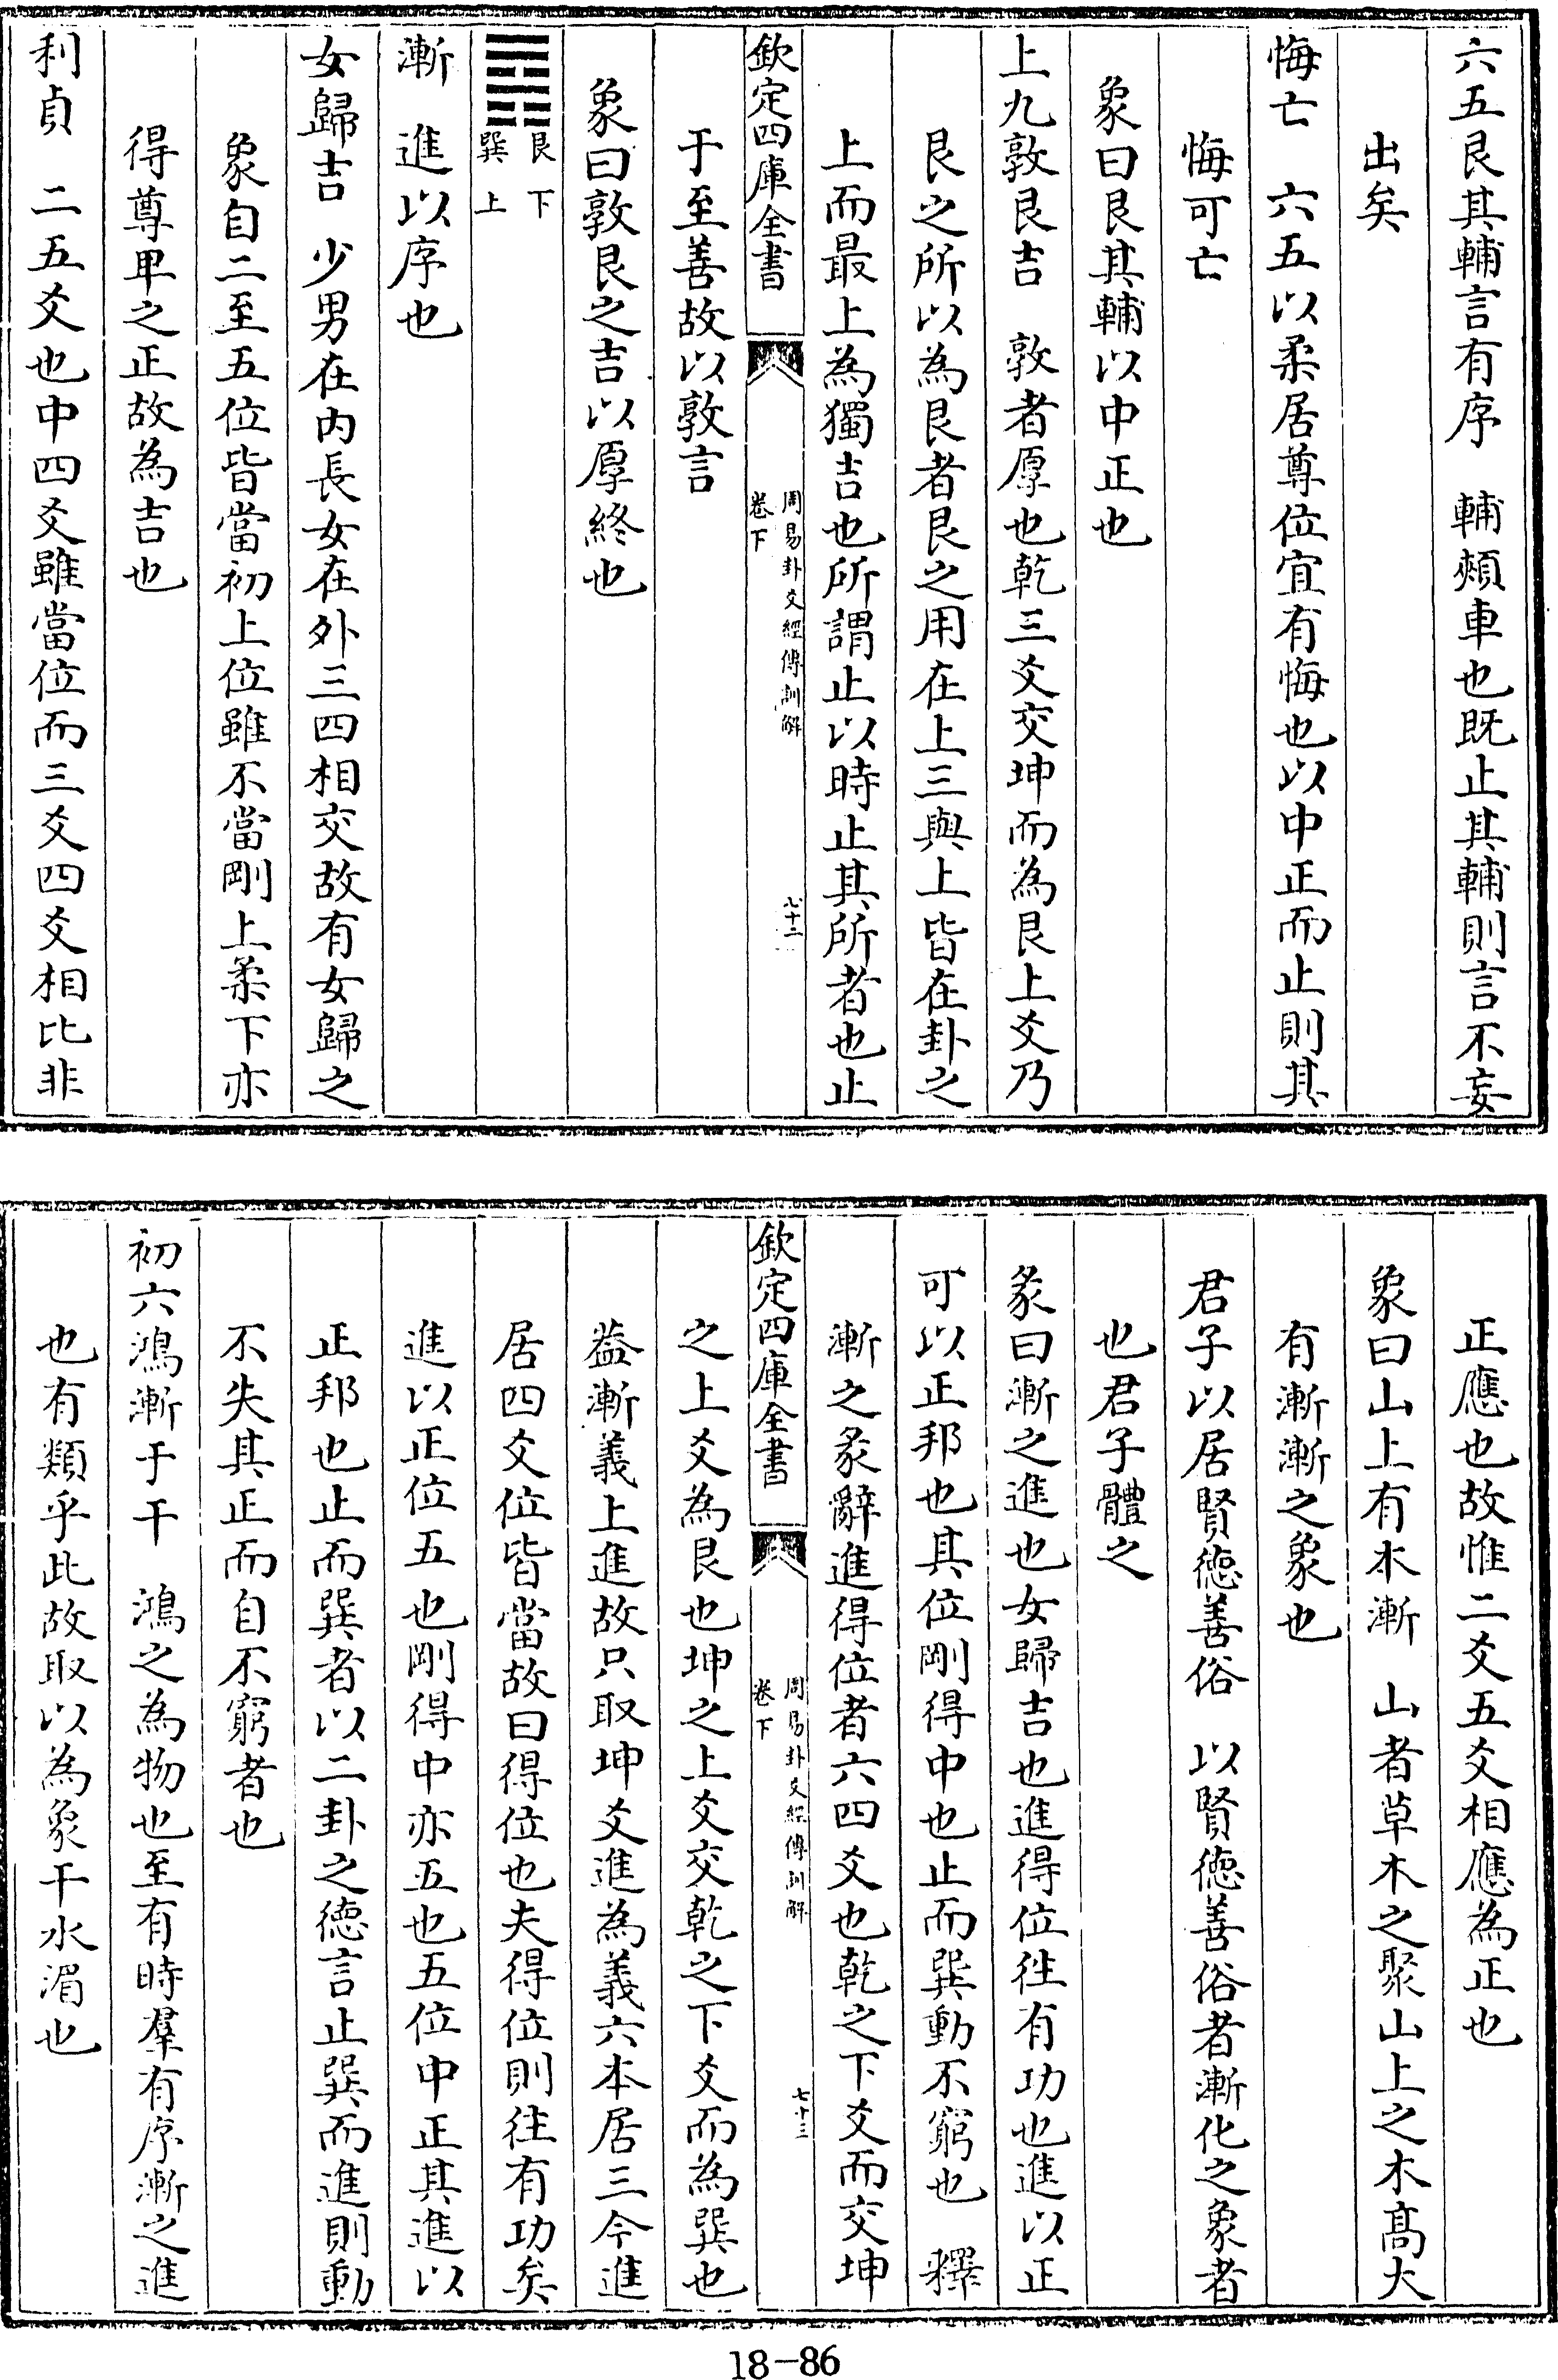 六五艮其輔言有序　輔頰車也既止其輔則言不妄
出矣
悔亡　六五以柔居尊位宜有悔也以中正而止則其
悔可亡
象曰艮其輔以中正也
上九敦艮吉　敦者厚也乾三爻交坤而為艮上爻乃
艮之所以為艮者艮之用在上三與上皆在卦之
上而最上為獨吉也所謂止以時止其所者也止
欽定四庫全書
周易卦爻經傳訓解
卷下
七十二
于至善故以敦言
象曰敦艮之吉以厚終也
䷴
艮下
巽上
漸　進以序也
女歸吉　少男在内長女在外三四相交故有女歸之
象自二至五位皆當初上位雖不當剛上柔下亦
得尊卑之正故為吉也
利貞　二五爻也中四爻雖當位而三爻四爻相比非
正應也故惟二爻五爻相應為正也
象曰山上有木漸　山者草木之聚山上之木高大
有漸漸之象也
君子以居賢徳善俗　以賢徳善俗者漸化之象者
也君子體之
彖曰漸之進也女歸吉也進得位徃有功也進以正
可以正邦也其位剛得中也止而巽動不窮也　釋
漸之彖辭進得位者六四爻也乾之下爻而交坤
欽定四庫全書
周易卦爻經傳訓解
卷下
七十三
之上爻為艮也坤之上爻交乾之下爻而為巽也
葢漸義上進故只取坤爻進為義六本居三今進
居四爻位皆當故曰得位也夫得位則往有功矣
進以正位五也剛得中亦五也五位中正其進以
正邦也止而巽者以二卦之徳言止巽而進則動
不失其正而自不窮者也
初六鴻漸于干　鴻之為物也至有時羣有序漸之進
也有類乎此故取以為象干水湄也
18-86